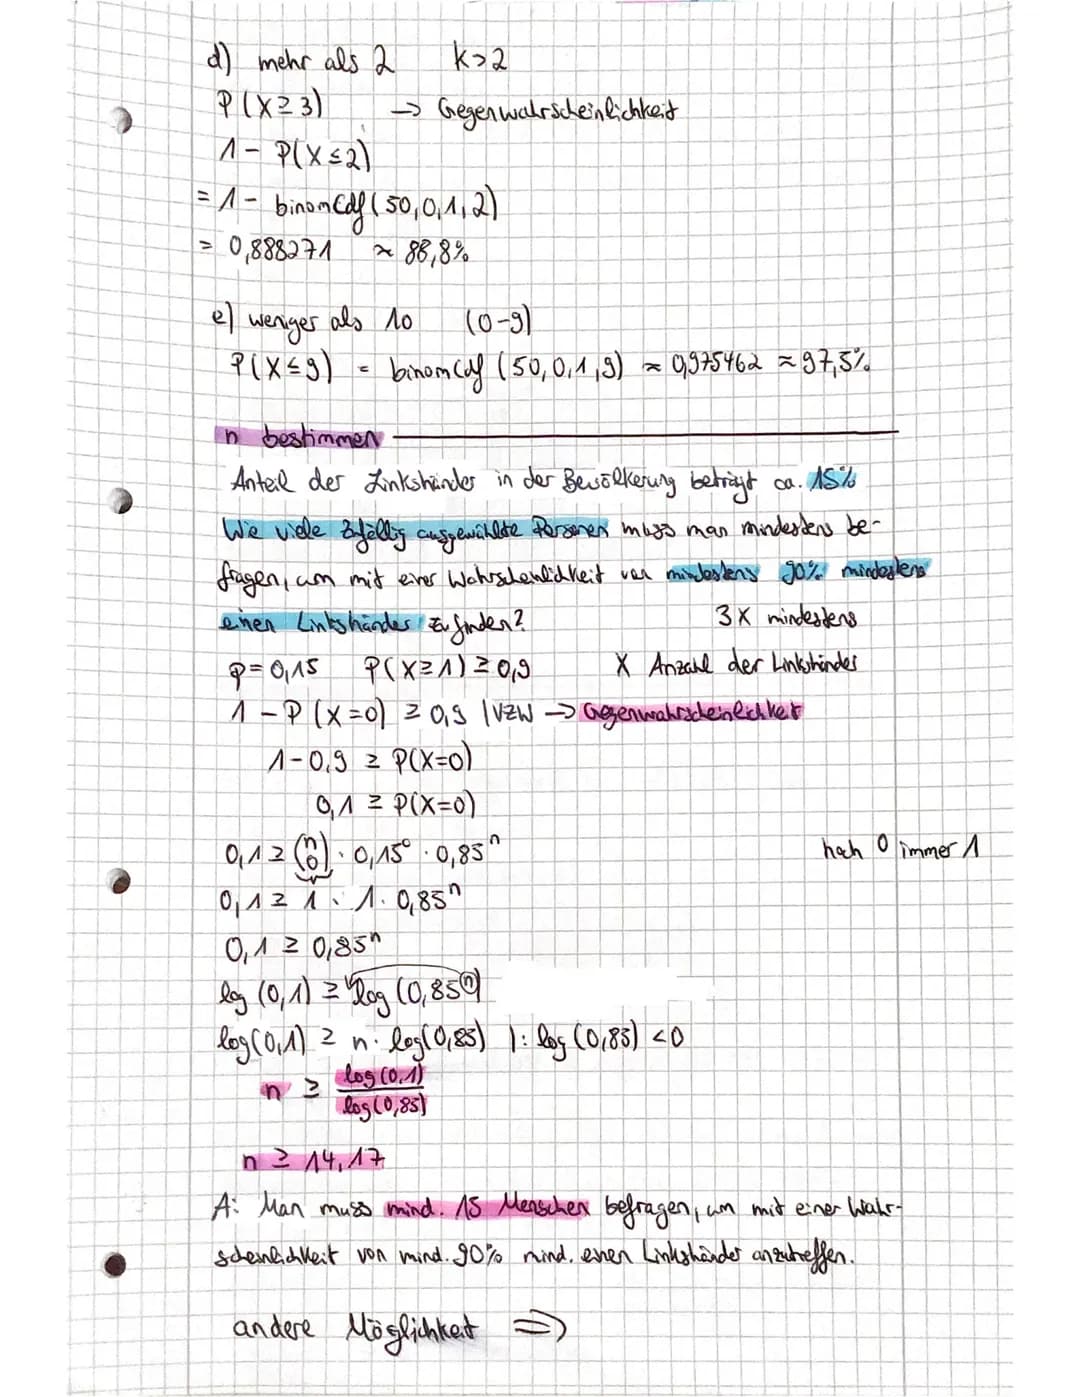 d) mehr als 2 k>2
P(X≥3) → Gegenwahrscheinlichkeit
1 - P(X≤2)
= 1 - binomCdf(50,0,1,2)
= 0,888271 ≈ 88,8%
e) weniger als 10 (0-9)
P(X≤9) = binomCdf (50,0,1,9) ≈ 0,975462 ≈ 97,5%
n bestimmen
Anteil der Linkshänder in der Bevölkerung beträgt ca. 15%
Wie viele zufällig ausgewählte Personen muss man mindestens be-
fragen, um mit einer Wahrscheinlichkeit von mindestens 90% mindestens
einen Linkshänder zu finden? 3X mindestens
p=0,15 P(X≥1) ≥ 0,9 X Anzahl der Linkshänder
1 - P (X=0) ≥ 0,9 |VZW → Gegenwahrscheinlichkeit
1-0,9 ≥ P(X=0)
0,1 ≥ P(X=0)
0,1 ≥ (n 0) · 0,15⁰ · 0,85ⁿ hoch 0 immer 1
0,1 ≥ 1 · 1 · 0,85ⁿ
0,1 ≥ 0,85ⁿ
log (0,1) ≥ log (0,85ⁿ)
log(0,1) ≥ n · log(0,85) |: log (0,85) <0
n ≥ log(0,1)
log(0,85)
n ≥ 14,17
A: Man muss mind. 15 Menschen befragen, um mit einer Wahr-
scheinlichkeit von mind. 90% mind. einen Linkshänder anzutreffen.
andere Möglichkeit ⇒